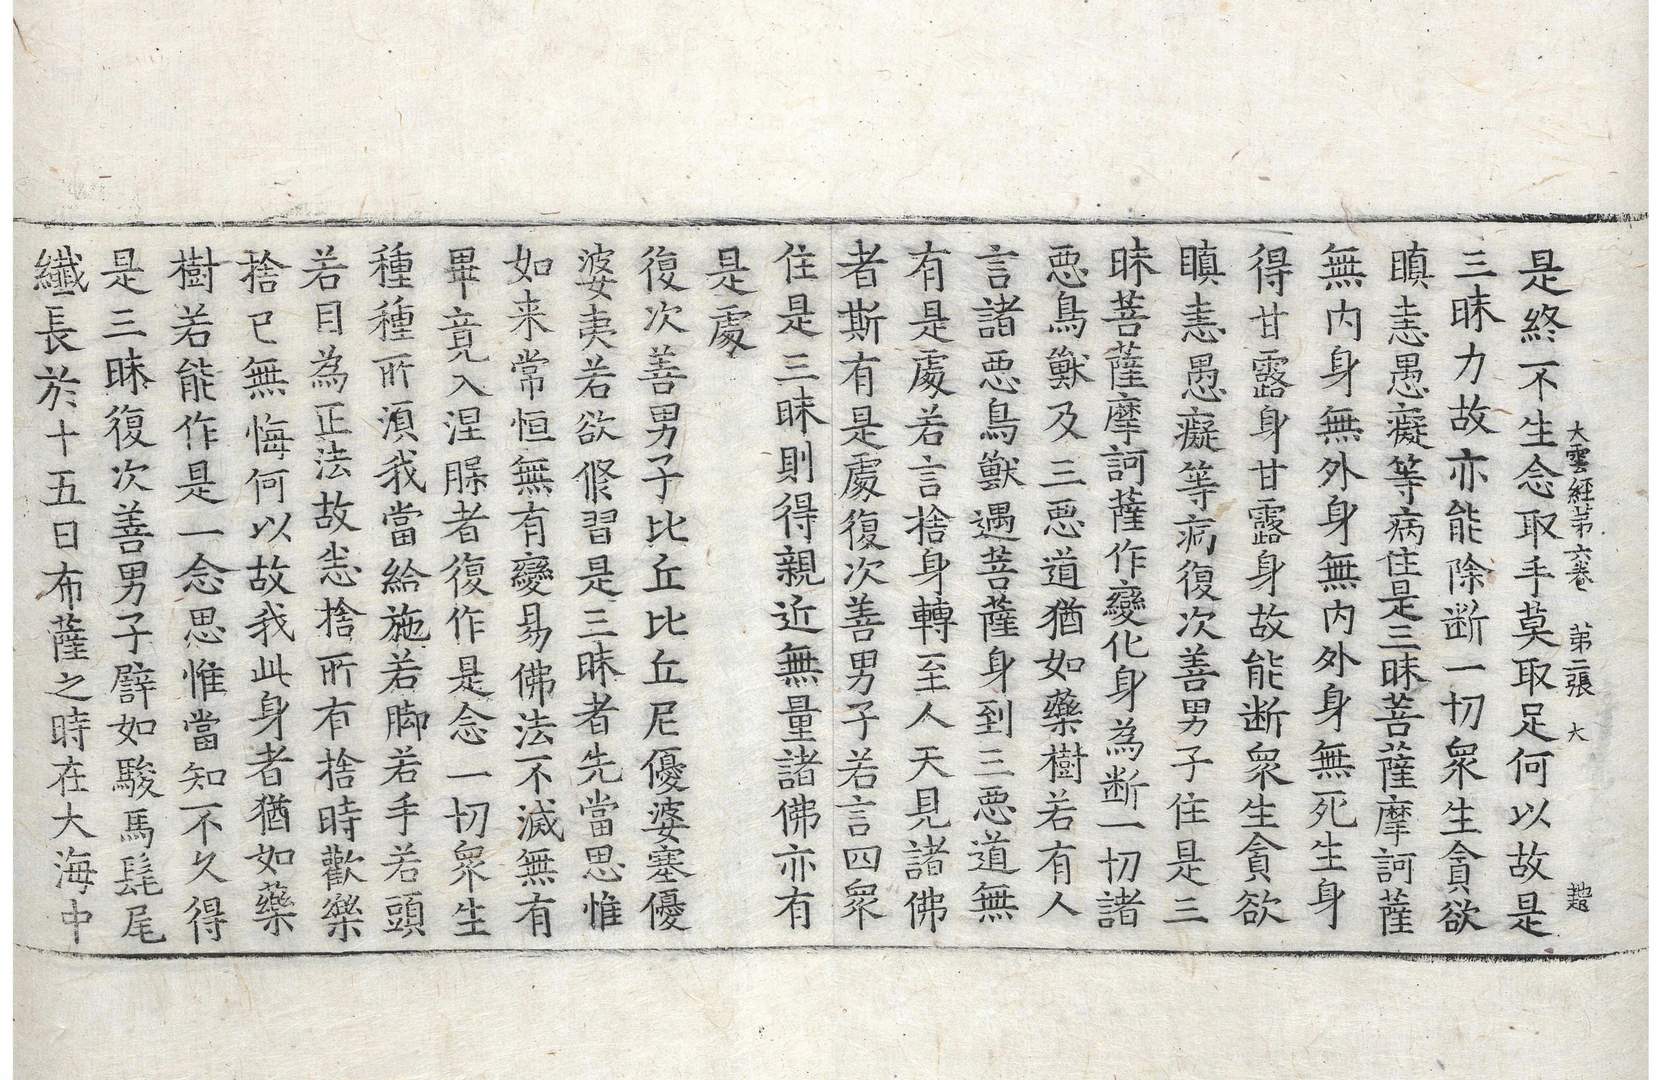 大雲經苐六卷 苐二張 大 趙
是終不生念取手莫取足何以故是
三昧力故亦能除断一切衆生貪欲
瞋恚愚癡等病住是三昧菩薩摩訶薩
無内身無外身無内外身無死生身
得甘露身甘露身故能断衆生貪欲
瞋恚愚癡等病復次善男子住是三
昧菩薩摩訶薩作變化身為断一切諸
悪鳥獸及三悪道猶如藥樹若有人
言諸悪鳥獸遇菩薩身到三悪道無
有是處若言捨身轉至人天見諸佛
者斯有是處復次善男子若言四衆
住是三昧則得親近無量諸佛亦有
是處
復次善男子比丘比丘尼優婆塞優
婆夷若欲修習是三昧者先當思惟
如来常恒無有變易佛法不滅無有
畢竟入涅槃者復作是念一切衆生
種種所湏我當給施若脚若手若頭
若目為正法故悉捨所有捨時歡樂
捨已無悔何以故我此身者猶如藥
樹若能作是一念思惟當知不久得
是三昧復次善男子譬如駿馬髦尾
纖長於十五日布薩之時在大海中